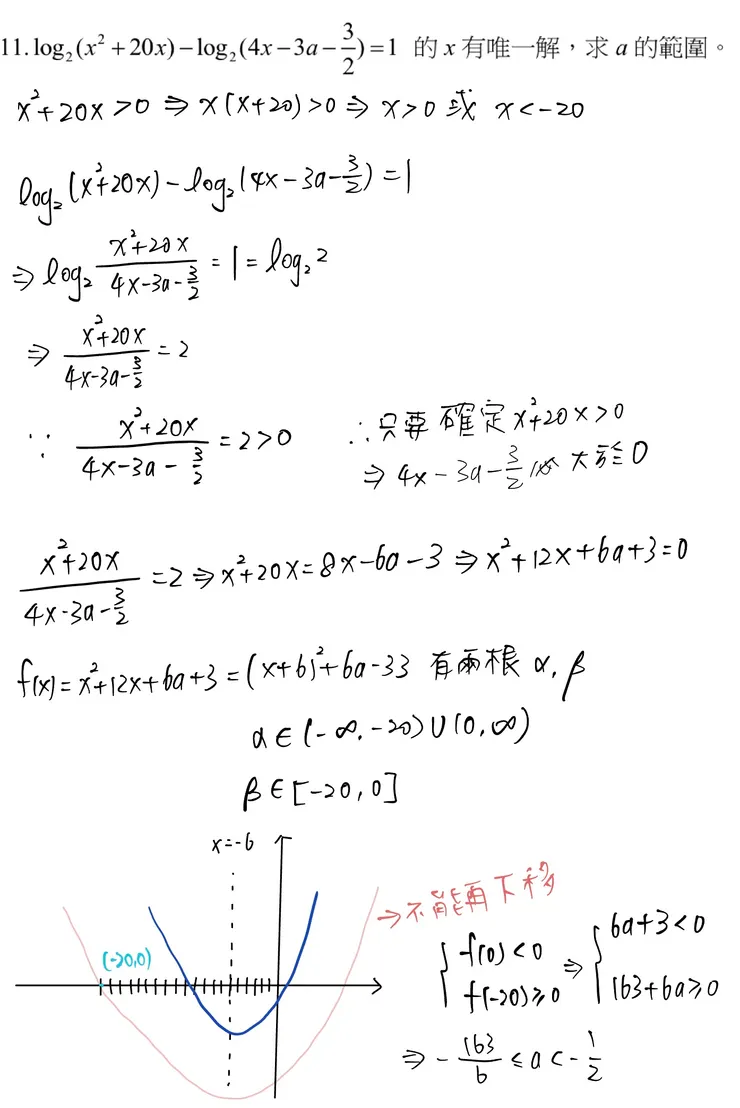 11. log₂(x² + 20x) − log₂(4x − 3a − 3/2) = 1 的 x 有唯一解，求 a 的範圍。
x²+20x>0 ⇒ x(x+20)>0 ⇒ x>0 或 x<-20
log₂(x²+20x)-log₂(4x-3a-3/2)=1
⇒ log₂ (x²+20x)/(4x-3a-3/2) = 1 = log₂ 2
⇒ (x²+20x)/(4x-3a-3/2) = 2
∵ (x²+20x)/(4x-3a-3/2) = 2>0 ∴只要確定 x²+20x>0
⇒ 4x-3a-3/2 必大於0
(x²+20x)/(4x-3a-3/2) = 2 ⇒ x²+20x=8x-6a-3 ⇒ x²+12x+6a+3=0
f(x)=x²+12x+6a+3=(x+6)²+6a-33 有兩根 α, β
α∈(-∞,-20)∪(0,∞)
β∈[-20,0]
x=-6
→不能再下移
(-20,0)
{ f(0)<0 ⇒ { 6a+3<0
f(-20)≥0 163+6a≥0
⇒ -163/6 ≤ a < -1/2